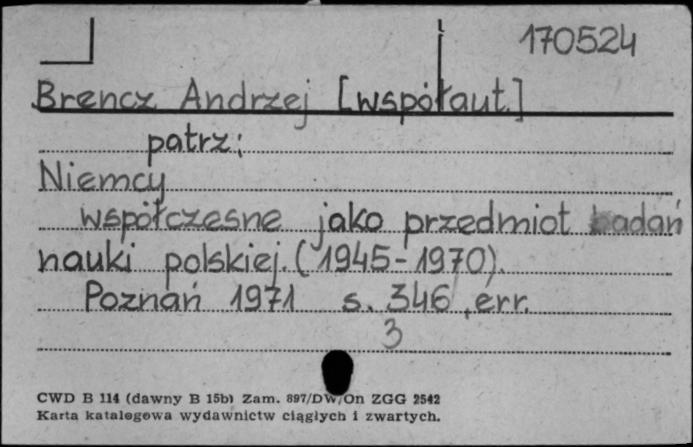 170524
Brencz Andrzej [współaut.]
patrz:
Niemcy
współczesne jako przedmiot badań
nauki polskiej. (1945-1970).
Poznań 1971 s. 346, err.
3
CWD B 114 (dawny B 15b) Zam. 897/DW/On ZGG 2542
Karta katalogowa wydawnictw ciągłych i zwartych.